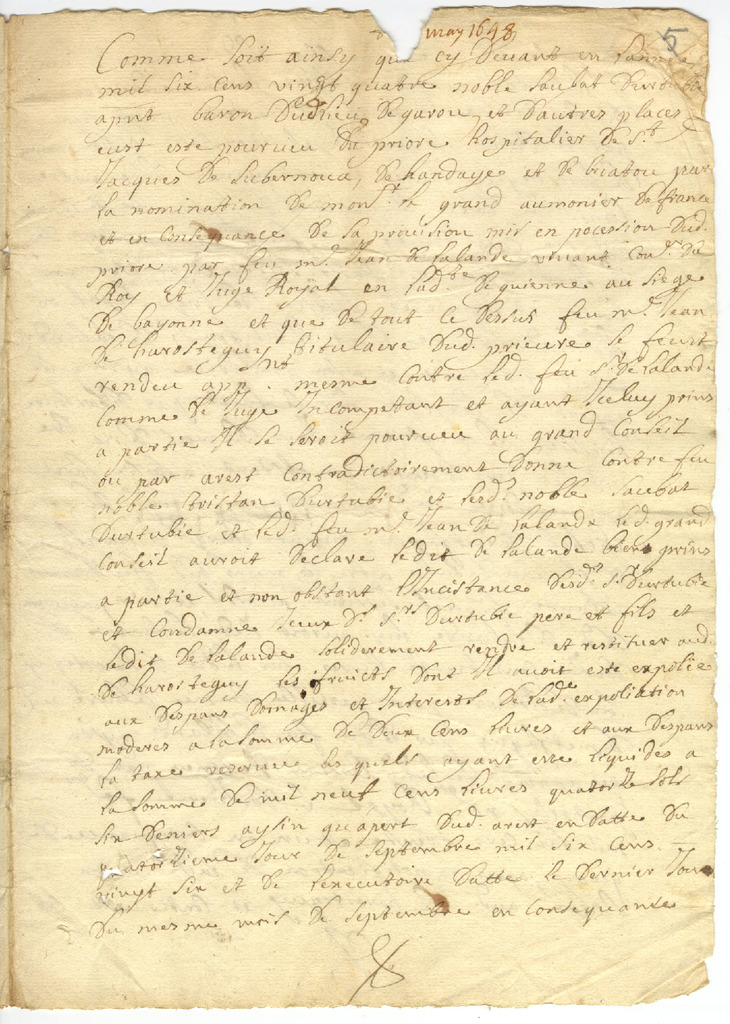 may 1648
5
Comme soit ainsy que cy devant en lannee
mil six cens vingt quatre noble saubat durtubie
baron de garou, et dautres places
eust este pourveu du priore hospitalier de St
Jacques de subernoua, de handaye et de biatou par
la nomination de monsr le grand aumonier de france
et en consequance de sa provision mis en pocession dud.
priore par feu mr Jean de lalande vivant conr du
Roy et Juge Royal en lad. de guienne au siege
de bayonne et que de tout ce dessus feu mr Jean
de harosteguy titulaire dud. prieure se feust
rendeu appnt mesme contre led. feu sr de lalande
comme de Juge Incompettant et ayant Iceluy prins
a partie Il se seroit pourveu au grand Conseil
ou par arest contradictoirement donne contre feu
noble tristan durtubie et led. noble saubat
durtubie et led. feu mr Jean de lalande led. grand
Conseil auroit declare ledit de lalande bien prins
a partie et non obstant l'Incistance desd. srs durtubie
et condamne Iceux ds srs durtubie pere et fils et
ledit de lalande soliderement rendre et restituer aud.
de harosteguy les fruicts dont Il avoit este expolie
aux despans domages et Interests de lade expoliation
moderes a la somme de deux cens livres et aux despans
la taxe reservee les quels ayant este liquides a
la somme de mil neuf cens livres quatorze sols
six deniers aysin quapert dud. arest en datte du
quatorzieme Jour de septembre mil six cens
vingt six et de lexecutoire datte le dernier Jour
du mesme mois de septembre en consequance